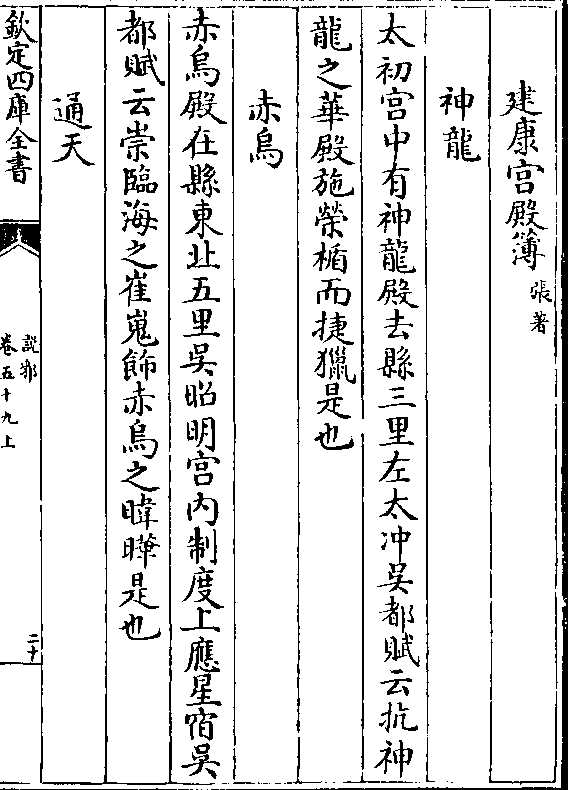 建康宫殿簿 張著
神龍
太初宫中有神龍殿去縣三里左太冲吳都賦云抗神
龍之華殿施榮楯而捷獵是也
赤烏
赤烏殿在縣東北五里吳昭明宫内制度上應星宿吳
都賦云崇臨海之崔嵬飾赤烏之暐曄是也
通天
欽定四庫全書
說郛
卷五十九上
二十